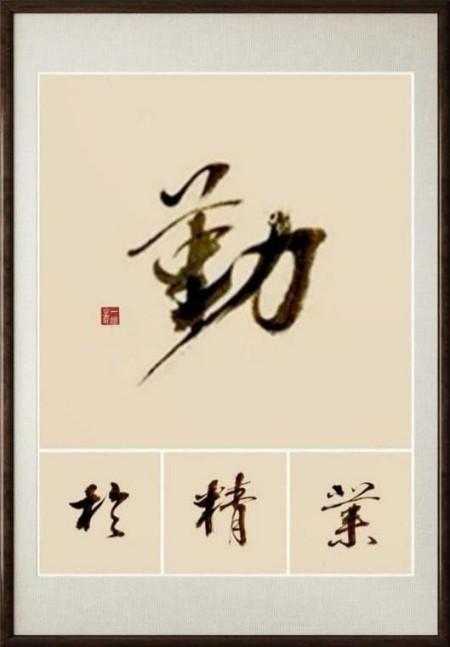 勤
於精業